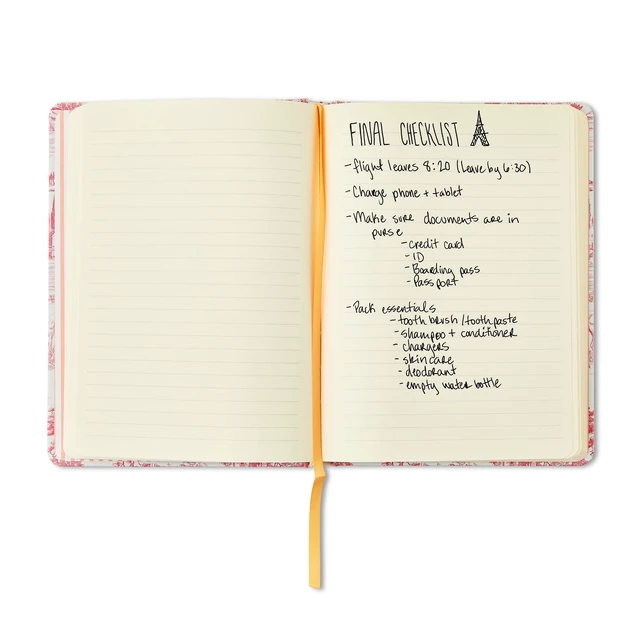 FINAL CHECKLIST
-flight leaves 8:20 (Leave by 6:30)
-Charge phone + tablet
-Make sure documents are in
purse
-credit card
-ID
-Boarding pass
-Passport
-Pack essentials
-tooth brush/toothpaste
-shampoo + conditioner
-chargers
-skincare
-deodorant
-empty water bottle